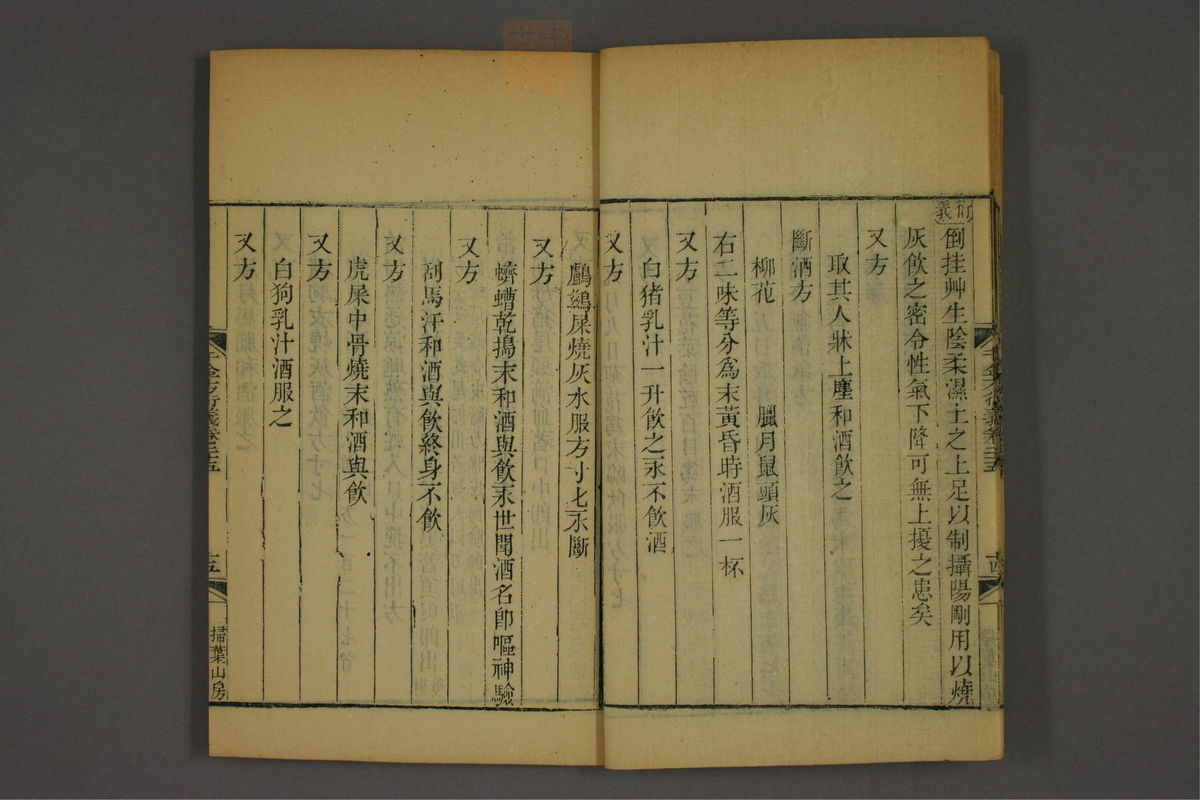 衍義
倒挂艸生陰柔濕土之上足以制攝陽剛用以燒
灰飲之密令性氣下降可無上擾之患矣
又方
取其人牀上塵和酒飲之
斷酒方
柳花 臘月鼠頭灰
右二味等分爲末黃昏時酒服一杯
又方
白猪乳汁一升飲之永不飲酒
又方
鸕鷀屎燒灰水服方寸匕永斷
又方
蠐螬乾搗末和酒與飲永世聞酒名卽嘔神驗
又方
刮馬汗和酒與飲終身不飲
又方
虎屎中骨燒末和酒與飲
又方
白狗乳汁酒服之
又方
千金方衍義卷二十五
十五
掃葉山房